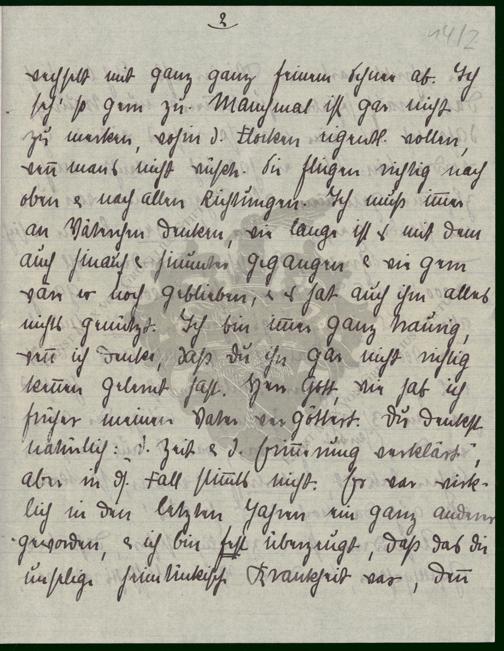 2
14/2
wechselt mit ganz ganz feinem Schnee ab. Ich
seh' so gern zu. Manchmal ist gar nicht
zu merken, wohin d. Flocken eigentl. wollen,
weñ mans nicht wüsste. Sie fliegen richtig nach
oben & nach allen Richtungen. Ich muß im̅er
an Väterchen denken, wie lange ist's mit dem
auch hinauf & hinunter gegangen & wie gern
wär er noch geblieben, & es hat auch ihm alles
nichts genützt. Ich bin im̅er ganz traurig,
weñ ich denke, daß Du ihn gar nicht richtig
keñen gelernt hast. Herr Gott, wie hab ich
früher meinen Vater vergöttert. Du denkst
natürlich: „d. Zeit & d. Eriñerung verklärt",
aber in ds. Fall stim̅ts nicht. Er war wirk-
lich in den letzten Jahren ein ganz anderer
geworden, & ich bin fest überzeugt, daß das die
unselige heimtückische Krankheit war, deñ